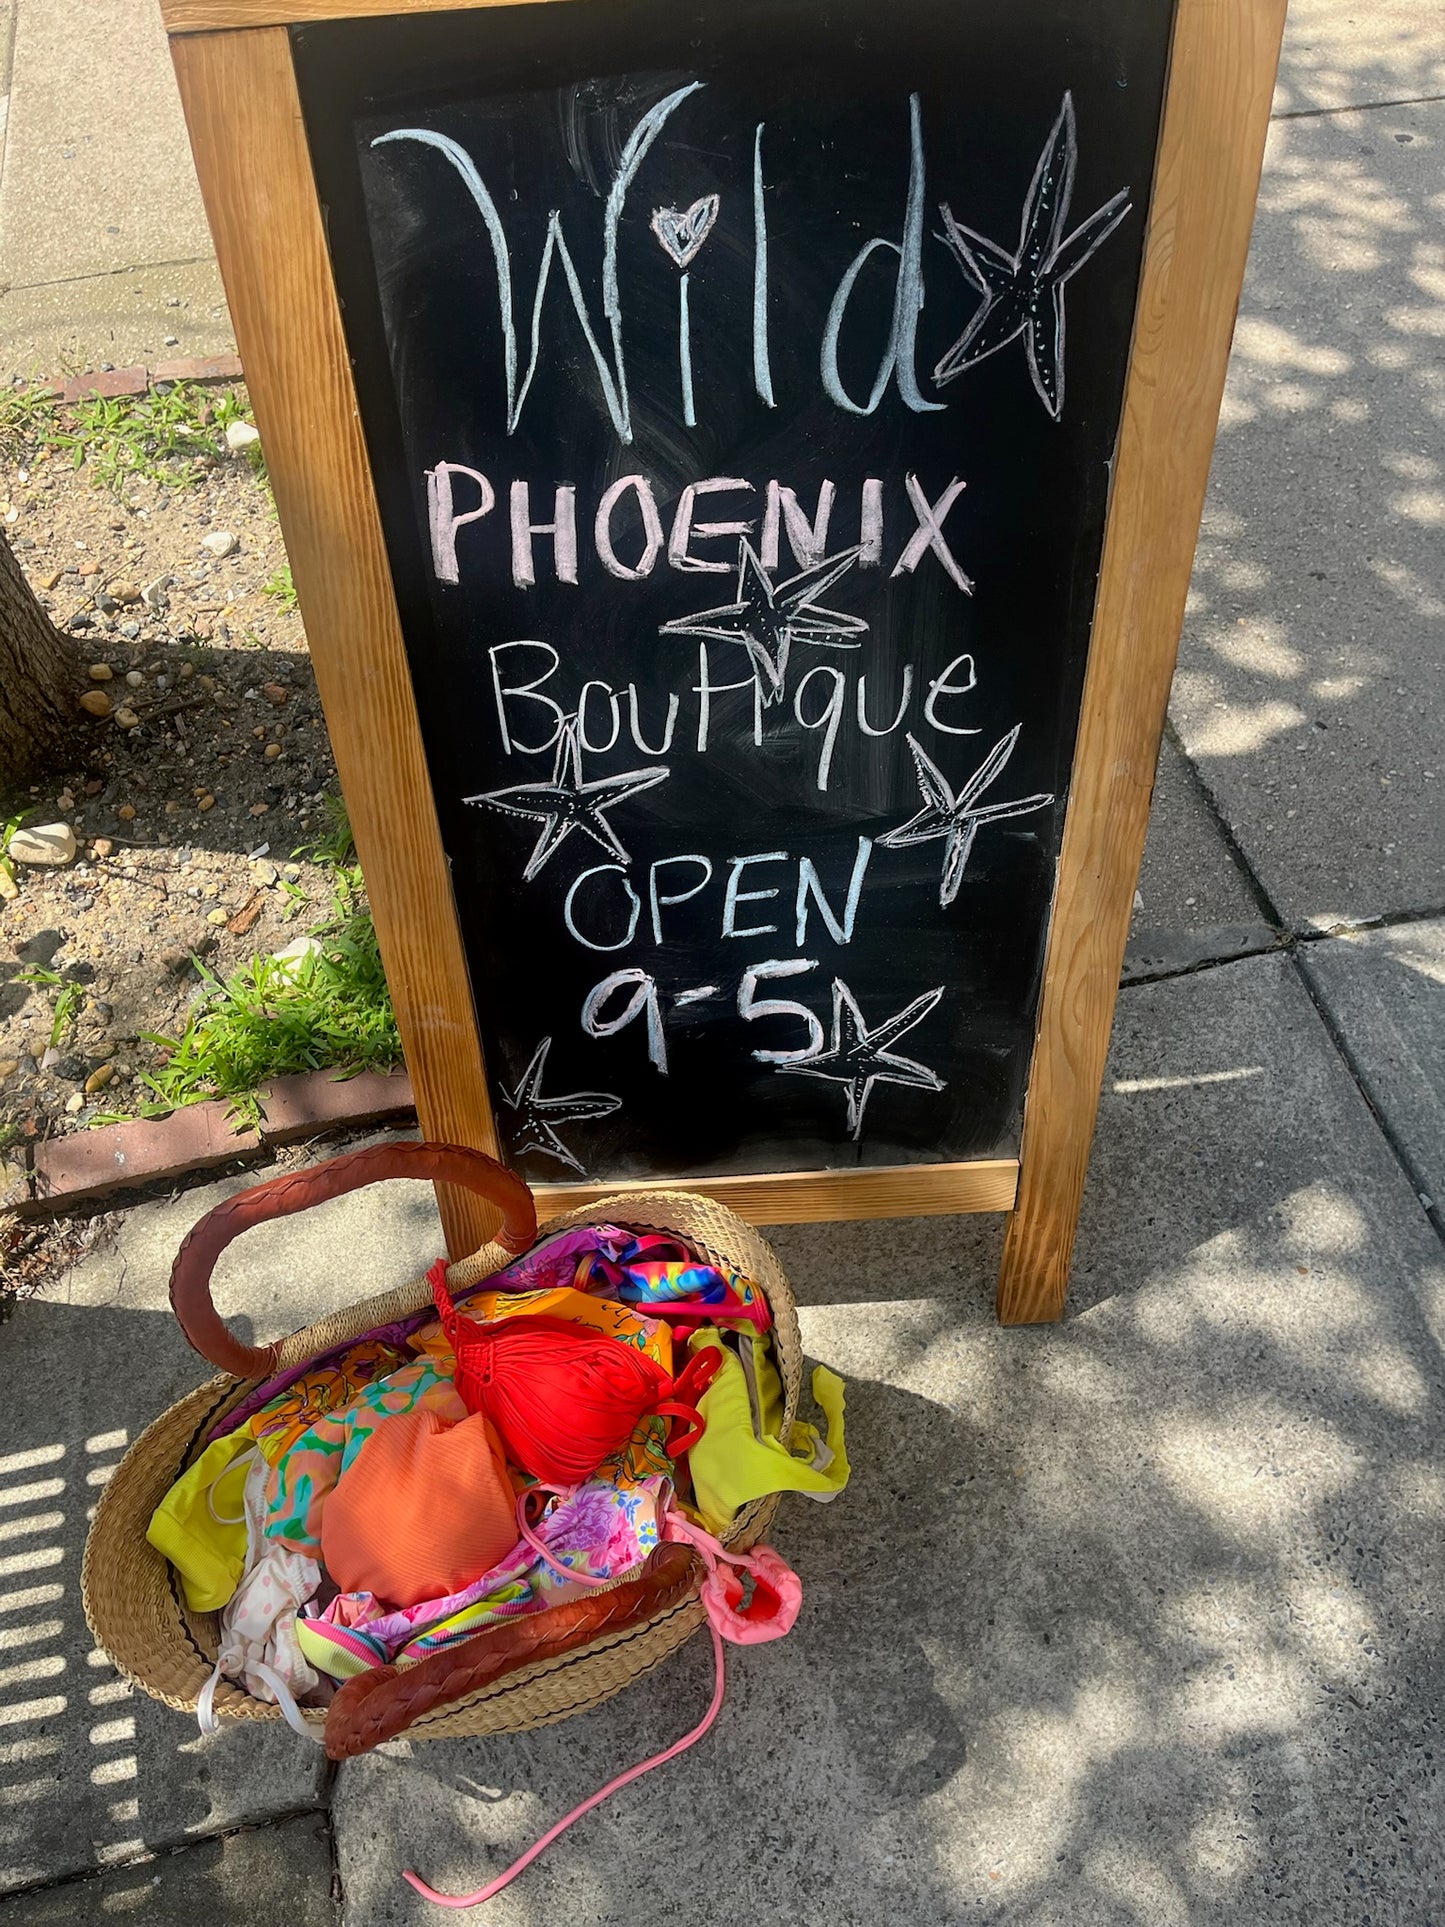 Wild
PHOENIX
Boutique
OPEN
9-5